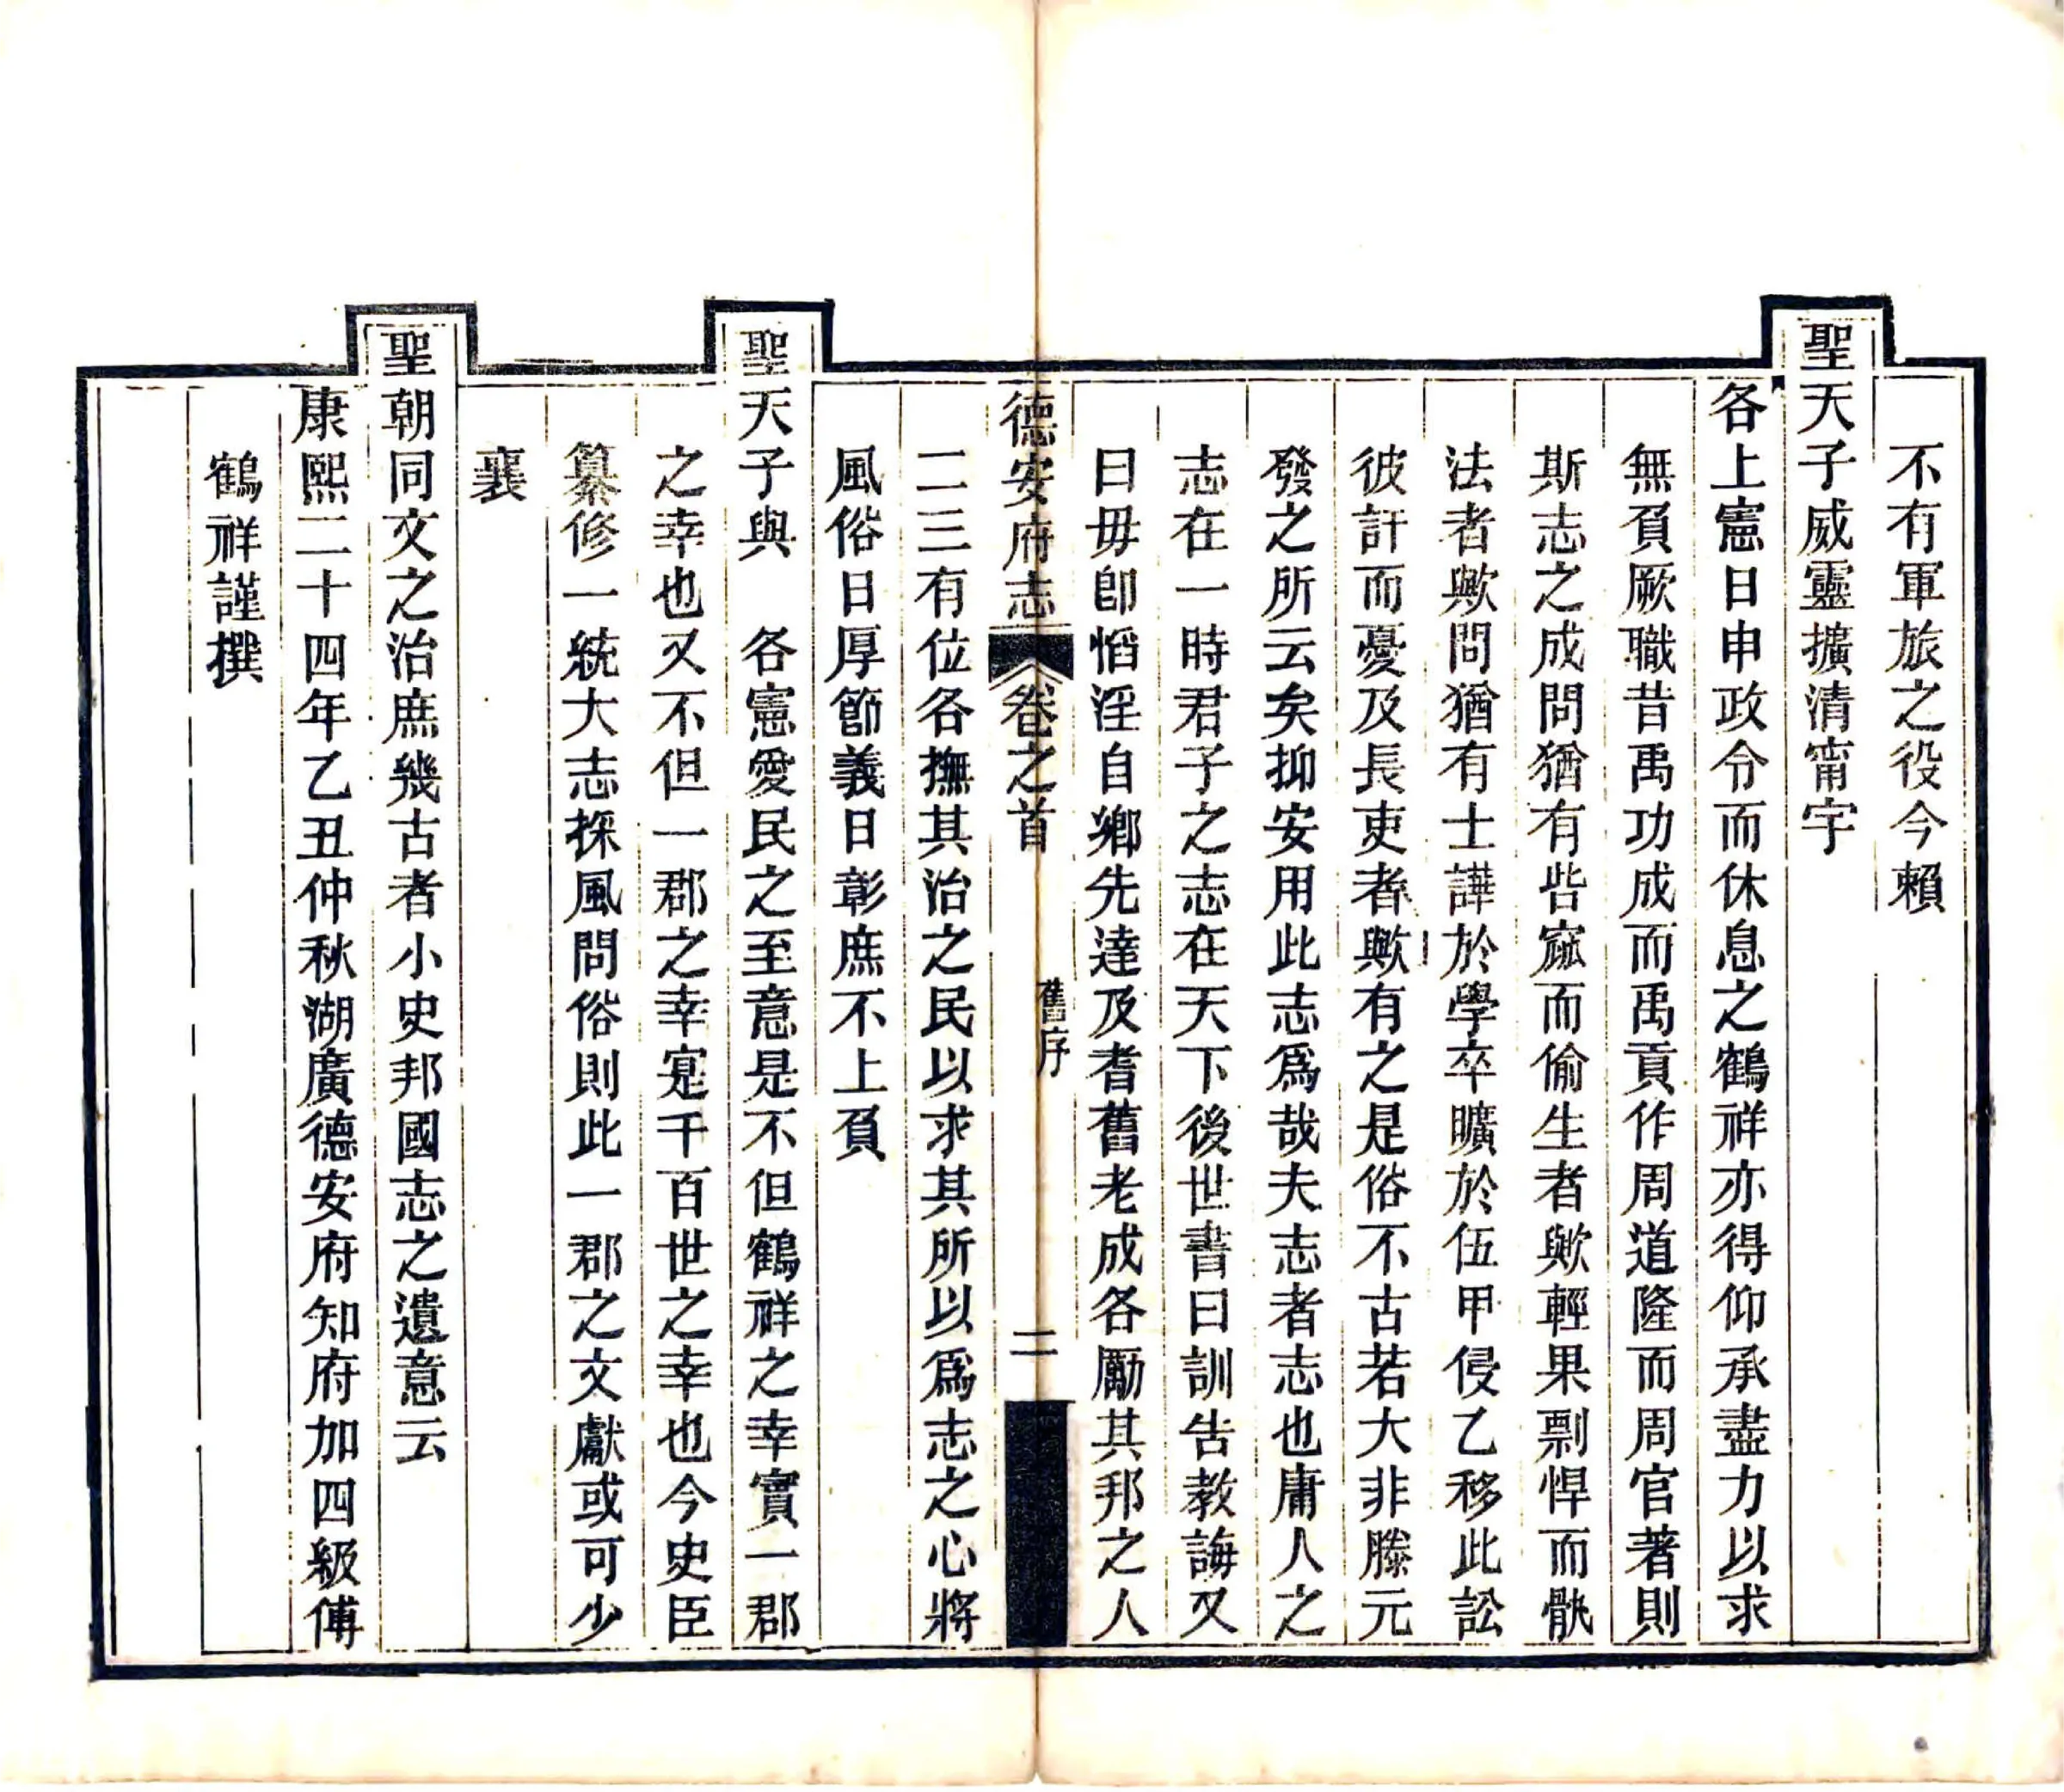 不有軍旅之役今賴
聖天子威靈擴清甯宇
各上憲日申政令而休息之鶴祥亦得仰承盡力以求
無負厥職昔禹功成而禹貢作周道隆而周官著則
斯志之成問猶有呰窳而偷生者歟輕果剽悍而骫
法者歟問猶有士譁於學卒曠於伍甲侵乙移此訟
彼訐而憂及長吏者歟有之是俗不古若大非滕元
發之所云矣抑安用此志爲哉夫志者志也庸人之
志在一時君子之志在天下後世書曰訓告教誨又
曰毋卽慆淫自鄉先達及耆舊老成各勵其邦之人
德安府志 卷之首 舊序 二
二三有位各撫其治之民以求其所以爲志之心將
風俗日厚節義日彰庶不上負
聖天子與 各憲愛民之至意是不但鶴祥之幸實一郡
之幸也又不但一郡之幸寔千百世之幸也今史臣
纂修一統大志採風問俗則此一郡之文獻或可少
襄
聖朝同文之治庶幾古者小史邦國志之遺意云
康熙二十四年乙丑仲秋湖廣德安府知府加四級傅
鶴祥謹撰